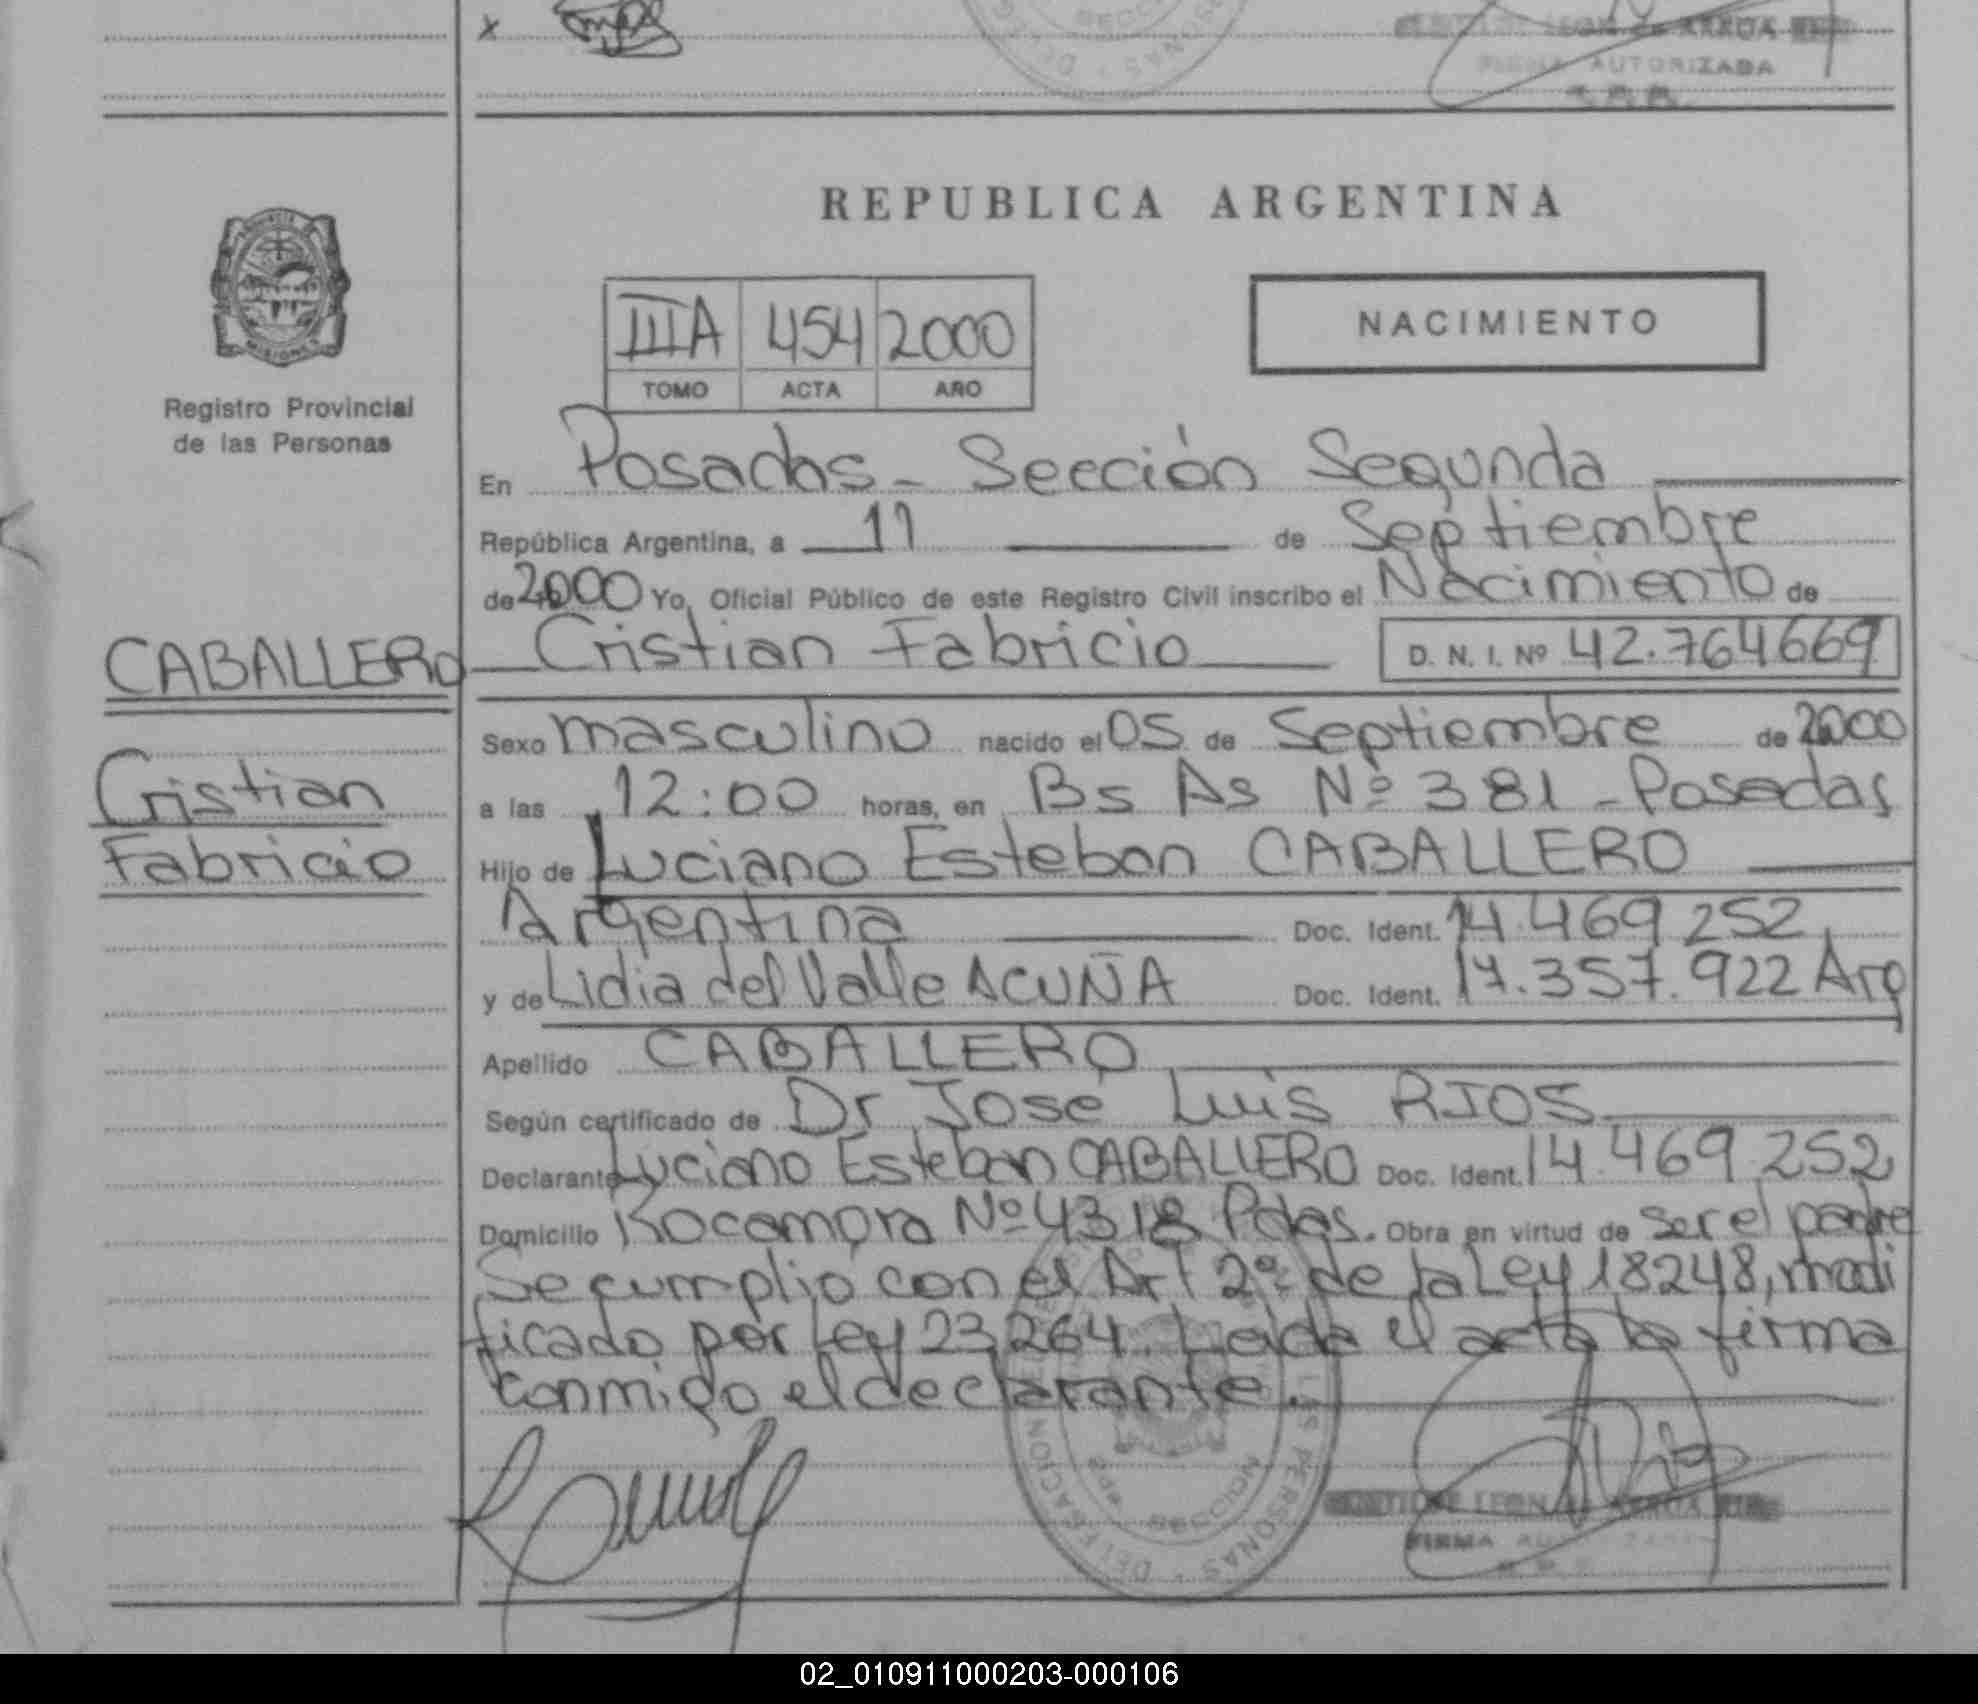 FIRMA AUTORIZADA
REPUBLICA ARGENTINA
MISIONES
Registro Provincial
de las Personas
IIIA 454 2000
TOMO ACTA AÑO
NACIMIENTO
En Posadas - Sección Segunda
República Argentina, a 11 de Septiembre
de 2000 Yo, Oficial Público de este Registro Civil inscribo el Nacimiento de
CABALLERO Cristian Fabricio D. N. I. Nº 42.764669
Sexo masculino nacido el 05 de Septiembre de 2000
Cristian
a las 12:00 horas, en Bs As Nº 381 - Posadas
Fabricio
Hijo de Luciano Esteban CABALLERO
Argentina Doc. Ident. 14.469 252
y de Lidia del Valle ACUÑA Doc. Ident. 17.357.922 Arg
Apellido CABALLERO
Según certificado de Dr José Luis RIOS
Declarante Luciano Esteban CABALLERO Doc. Ident. 14.469.252
Domicilio Rocamora Nº 4318 Pdas. Obra en virtud de ser el padre
Se cumplió con el Art 2º de la Ley 18248, modi
ficado por Ley 23.264. Leida el acta la firma
conmigo el declarante.
LEON de
FIRMA
02_010911000203-000106